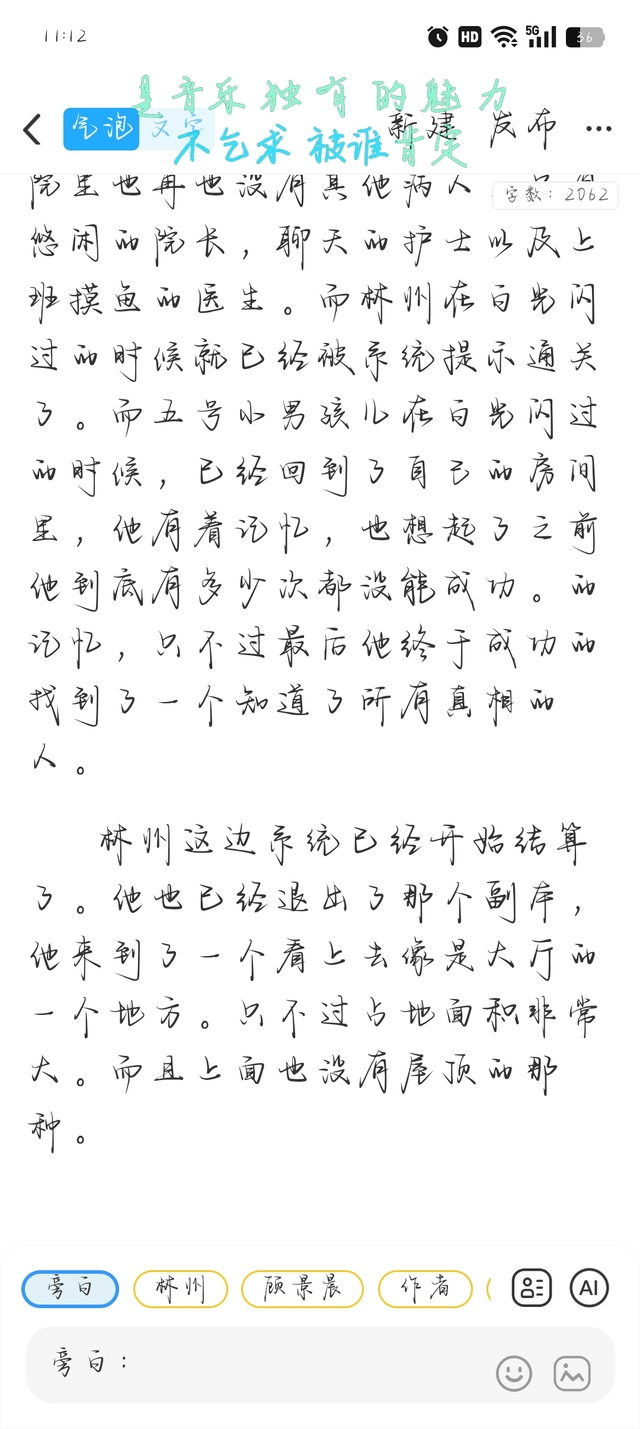 11:12
HD 5G 36
是音乐独有的魅力
气泡 文字 新建 发布
不乞求被谁肯定
院里也再也没有其他病人
字数：2062
悠闲的院长，聊天的护士以及上
班摸鱼的医生。而林州在白光闪
过的时候就已经被系统提示通关
了。而五号小男孩儿在白光闪过
的时候，已经回到了自己的房间
里，他有着记忆，也想起了之前
他到底有多少次都没能成功。的
记忆，只不过最后他终于成功的
找到了一个知道了所有真相的
人。
林州这边系统已经开始结算
了。他也已经退出了那个副本，
他来到了一个看上去像是大厅的
一个地方。只不过占地面积非常
大。而且上面也没有屋顶的那
种。
旁白 林州 顾景晨 作者 AI
旁白：